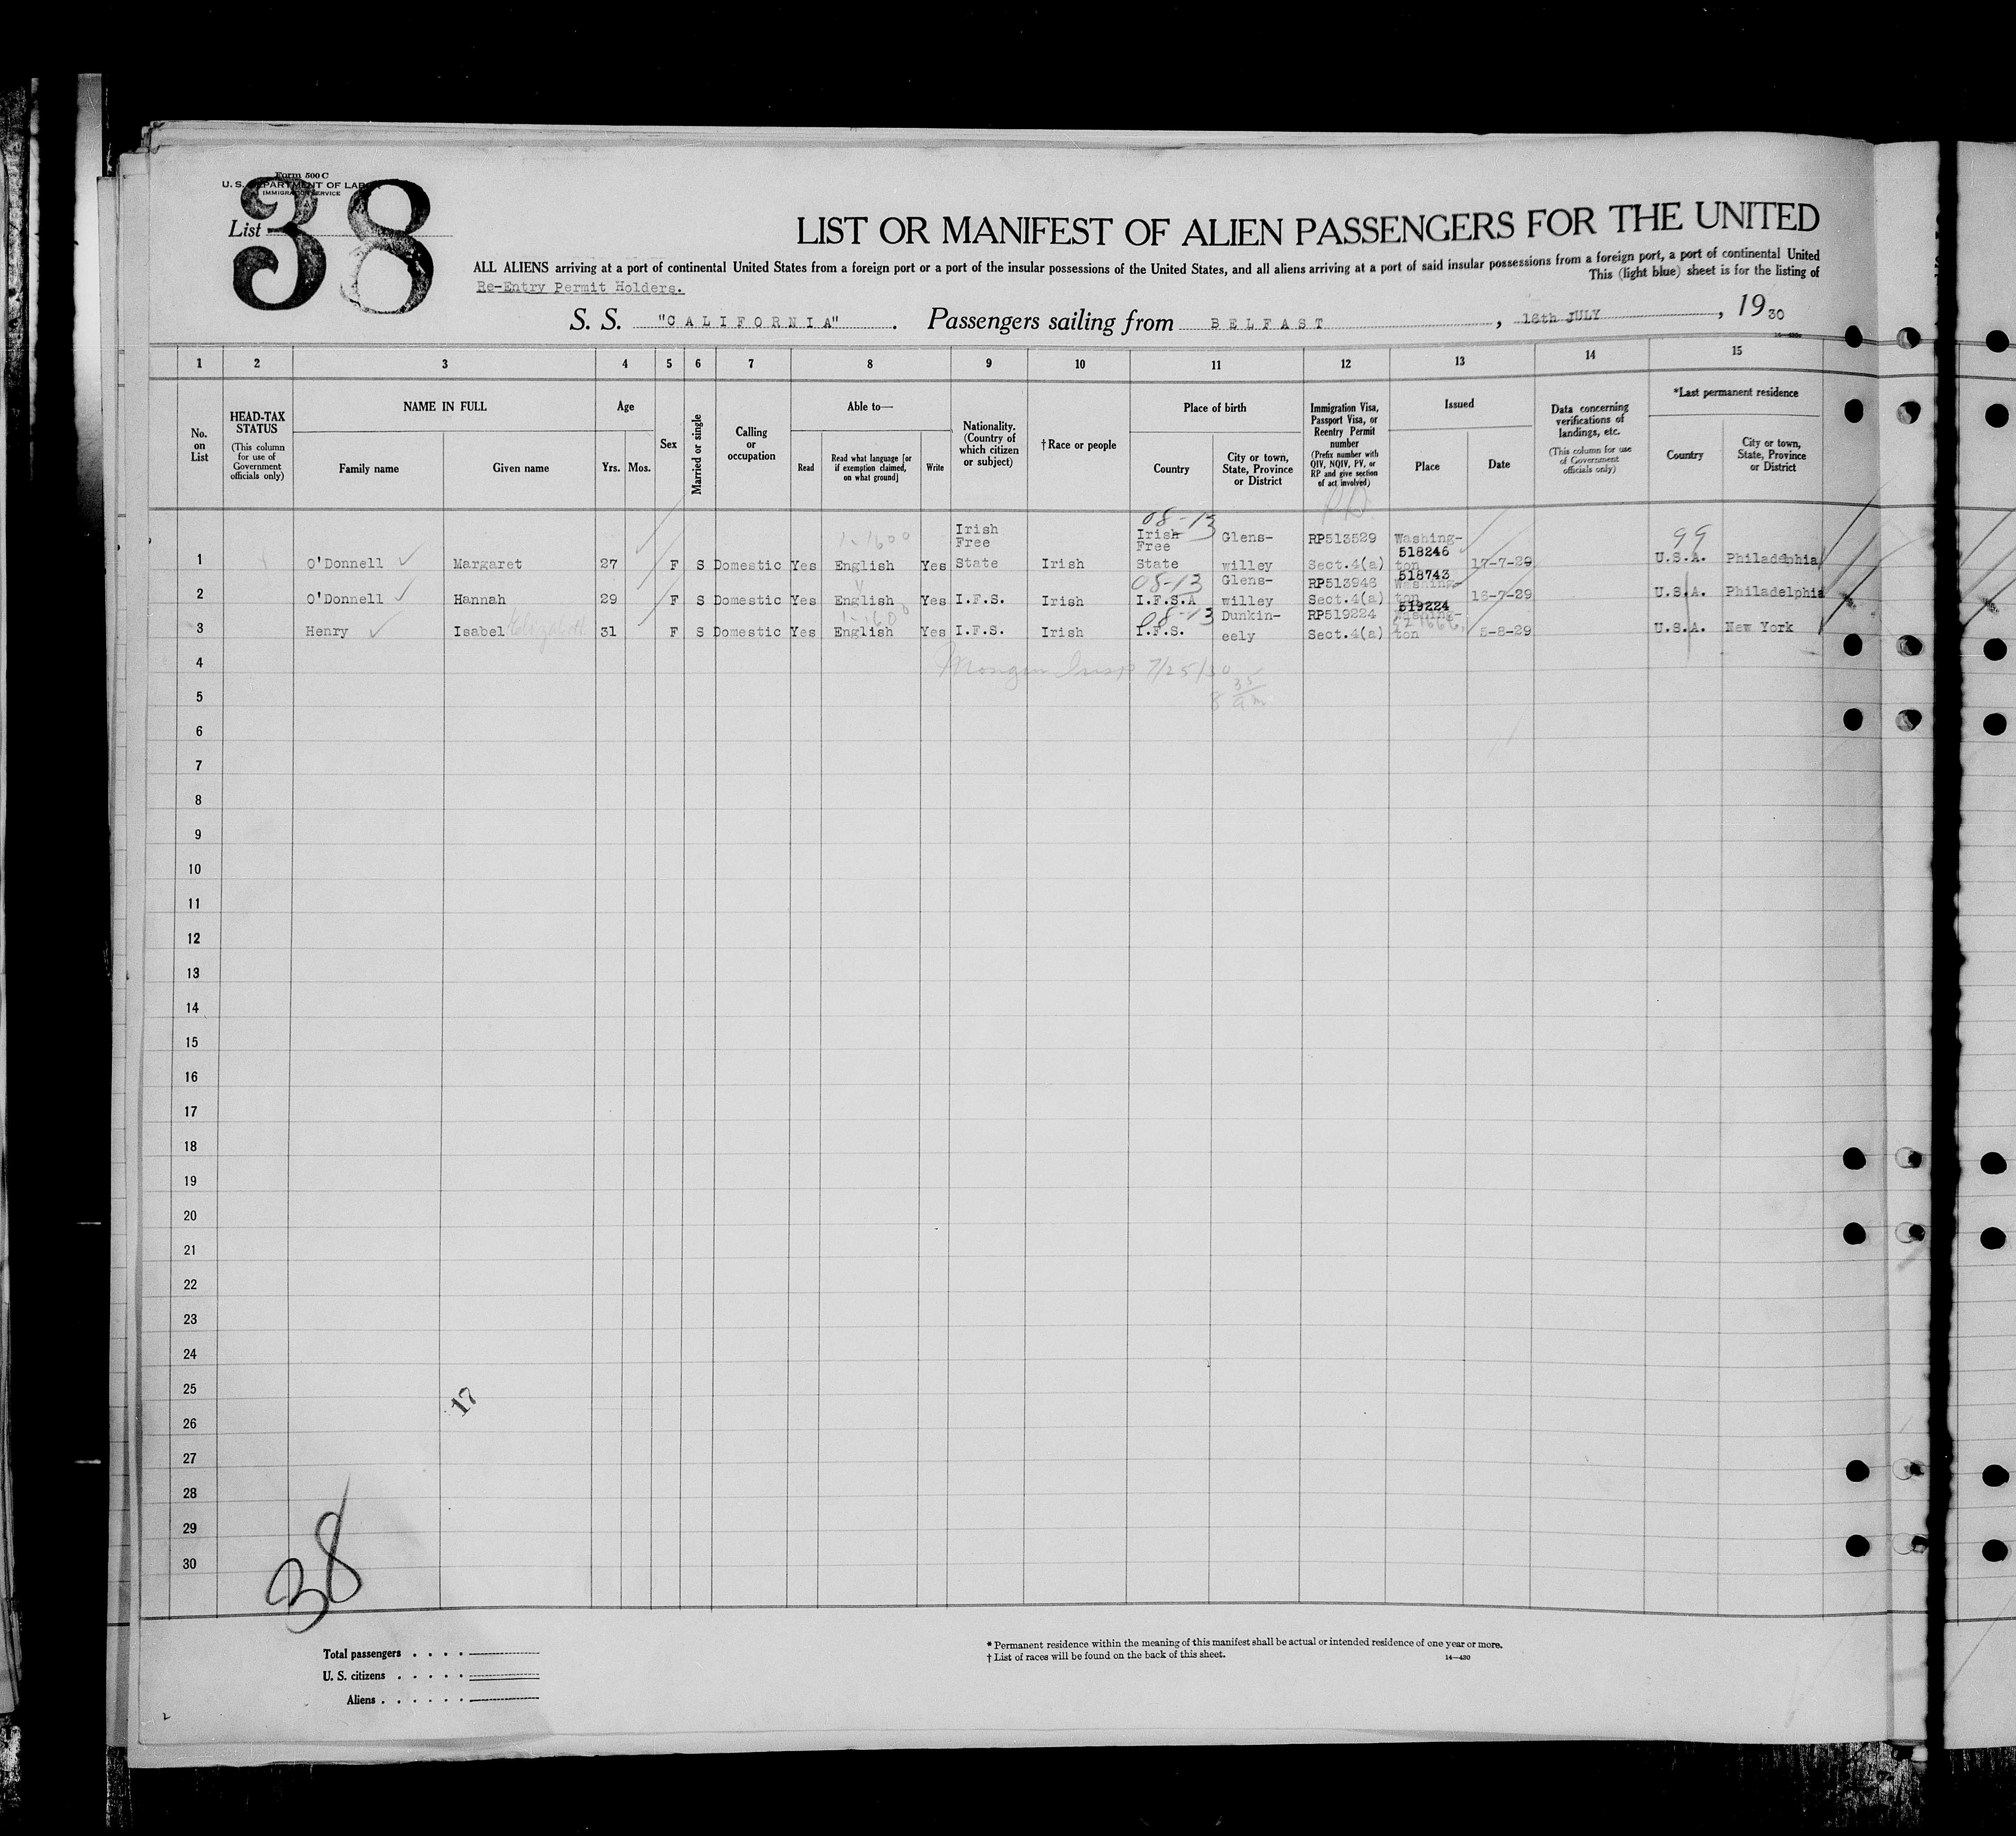 Form 500 C
U. S. DEPARTMENT OF LABOR
IMMIGRATION SERVICE
List 38
LIST OR MANIFEST OF ALIEN PASSENGERS FOR THE UNITED
ALL ALIENS arriving at a port of continental United States from a foreign port or a port of the insular possessions of the United States, and all aliens arriving at a port of said insular possessions from a foreign port, a port of continental United
This (light blue) sheet is for the listing of
Re-Entry Permit Holders.
S. S. "CALIFORNIA". Passengers sailing from BELFAST, 16th JULY, 1930
1 2 3 4 5 6 7 8 9 10 11 12 13 14 15
No. on List
HEAD-TAX STATUS (This column for use of Government officials only)
NAME IN FULL
Family name
Given name
Age
Yrs. Mos.
Sex
Married or single
Calling or occupation
Able to—
Read
Read what language [or if exemption claimed, on what ground]
Write
Nationality. (Country of which citizen or subject)
†Race or people
Place of birth
Country
City or town, State, Province or District
Immigration Visa, Passport Visa, or Reentry Permit number (Prefix number with QIV, NQIV, PV, or RP and give section of act involved)
Issued
Place
Date
Data concerning verifications of landings, etc. (This column for use of Government officials only)
*Last permanent residence
Country
City or town, State, Province or District
1 O'Donnell Margaret 27 F S Domestic Yes English 1-1600 Yes Irish Free State Irish 08-13 Irish Free State Glens-willey RP513529 Sect.4(a) Washing-ton 518246 17-7-29 99 U.S.A. Philadelphia
2 O'Donnell Hannah 29 F S Domestic Yes English Yes I.F.S. Irish 08-13 I.F.S.A Glens-willey RP513946 Sect.4(a) Washing-ton 518743 16-7-29 U.S.A. Philadelphia
3 Henry Isabel Elizabeth 31 F S Domestic Yes English 1-1600 Yes I.F.S. Irish 08-13 I.F.S. Dunkin-eely RP519224 Sect.4(a) Washing-ton 519224 5-8-29 U.S.A. New York
4
Insp 7/25/30
5
8 35 am
6
7
8
9
10
11
12
13
14
15
16
17
18
19
20
21
22
23
24
25
17
26
27
28
29
30
38
Total passengers
U. S. citizens
Aliens
* Permanent residence within the meaning of this manifest shall be actual or intended residence of one year or more.
† List of races will be found on the back of this sheet.
14—430
2